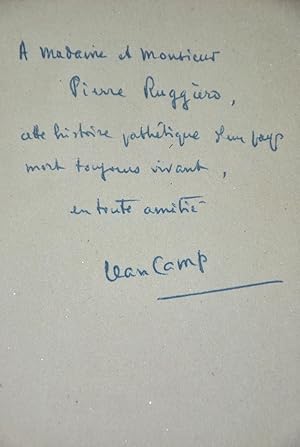 A Madame et Monsieur
Pierre Ruggiero,
cette histoire pathétique d'un pays
mort toujours vivant,
en toute amitié
Jean Camp